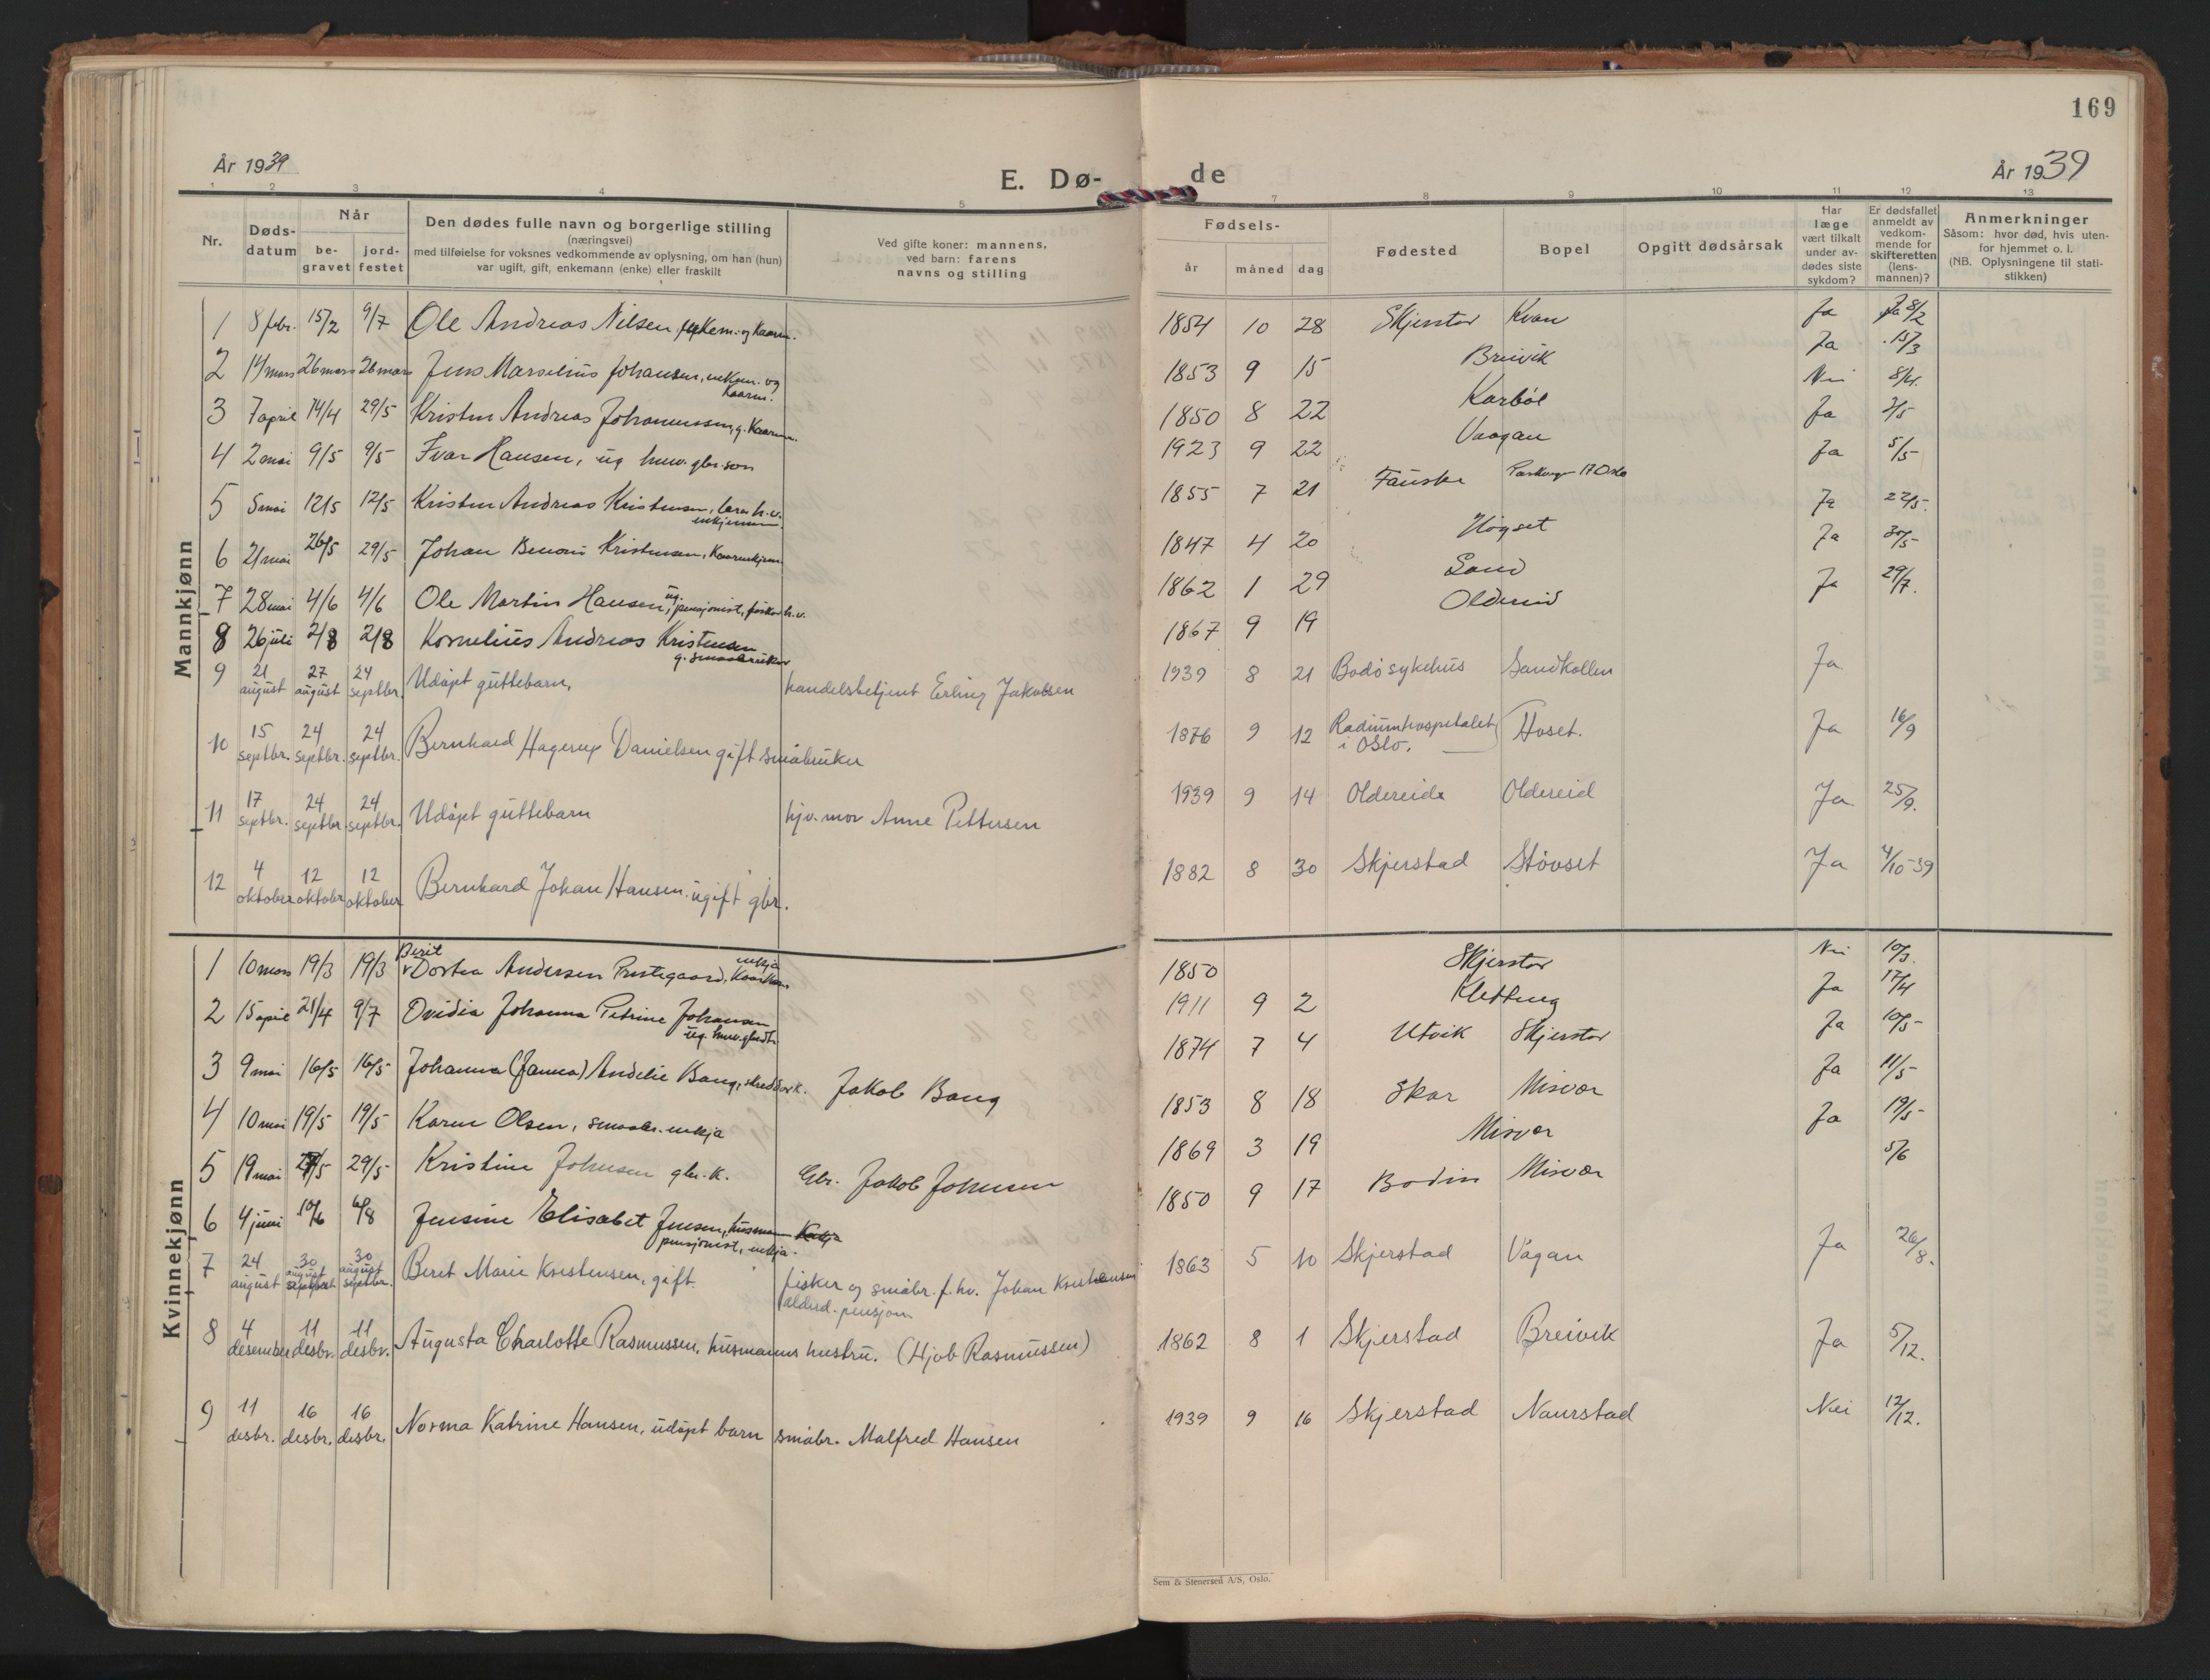 169
År 1939
E. Dø-
de
År 1939
1 2 3 4 5 7 8 9 10 11 12 13
Nr.
Døds-
datum
Når
be-
gravet
jord-
festet
Den dødes fulle navn og borgerlige stilling
(næringsvei)
med tilføielse for voksnes vedkommende av oplysning, om han (hun)
var ugift, gift, enkemann (enke) eller fraskilt
Ved gifte koner: mannens,
ved barn: farens
navns og stilling
Fødsels-
år
måned
dag
Fødested
Bopel
Opgitt dødsårsak
Har
læge
vært tilkalt
under av-
dødes siste
sykdom?
Er dødsfallet
anmeldt av
vedkom-
mende for
skifteretten
(lens-
mannen)?
Anmerkninger
Såsom: hvor død, hvis uten-
for hjemmet o. l.
(NB. Oplysningene til stati-
stikken)
Mannkjønn
1 8 febr. 15/2 9/7 Ole Andreas Nilsen, 1854 10 28 Skjerstad Kvan Ja 8/2
2 14 mars 26 mars 26 mars Jens Marselius Johansen, enkem. og Kaarm. 1853 9 15 Breivik Ja 15/3
3 7 april 14/4 29/5 Kristen Andreas Johannessen, g. Kaarm. 1850 8 22 Karbøl Nei 8/4.
4 2 mai 9/5 9/5 Ivar Hansen, ug. hmv. gbr. søn 1923 9 22 Vaagan Ja 3/5
5 5 mai 12/5 12/5 Kristen Andreas Kristensen, h.v. 1855 7 21 Fauske 17 Oslo Ja 5/5
6 21 mai 26/5 29/5 Johan Benoni Kristensen, 1847 4 20 Høgset Ja 22/5.
7 28 mai 4/6 4/6 Ole Martin Hansen, ug. pensjonist, fisker h.v. 1862 1 29 Sand Ja 30/5
8 26 juli 2/8 2/8 Kornelius Andreas Kristensen g. smaabruker 1867 9 19 Oldereid Ja 29/7.
9 21 august 27 august 24 septbr. Udøpt guttebarn, handelsbetjent Erling Jakobsen 1939 8 21 Bodø sykehus Sandkollen Ja
10 15 septbr. 24 septbr. 24 septbr. Bernhard Hagerup Danielsen gift småbruker 1876 9 12 Radiumhospitalet i Oslo. Hoset. Ja 16/9
11 17 septbr. 24 septbr. 24 septbr. Udøpt guttebarn hjv. mor Anne Pettersen 1939 9 14 Oldereide Oldereid Ja 25/9.
12 4 oktober 12 oktober 12 oktober Bernhard Johan Hansen ugift gbr. 1882 8 30 Skjerstad Støvset Ja 4/10-39
Kvinnekjønn
1 10 mars 19/3 19/3 Berit Dortea Andersen Prestegaard, enkja 1850 Skjerstad Nei 10/3.
2 15 april 21/4 9/7 Ovidia Johanna Petrine Johansen ug. 1911 9 2 Kletteng Ja 17/4
3 9 mai 16/5 16/5 Johanna (Janna) Andelie Bang, Jakob Bang 1874 7 4 Utvik Skjerstad Ja 10/5
4 10 mai 19/5 19/5 Karen Olsen, smaabr. enkja 1853 8 18 Skar Misvær Ja 11/5
5 19 mai 29/5 Kristine Johnsen gbr. k. Gbr. Jakob Johnsen 1869 3 19 Misvær Ja 19/5
6 4 juni 10/6 6/8 Jensine Elisabet Jensen, husmann pensjonist, enkja. 1850 9 17 Bodin Misvær 5/6
7 24 august 30 august 30 august Beret Marie Kristensen, gift. fisker og småbr. f. hv. Johan Kristensen alderd. pensjon 1863 5 10 Skjerstad Vågan Ja 26/8.
8 4 desember 11 desbr. 11 desbr. Augusta Charlotte Rasmussen, husmanns hustru. (Hjob Rasmussen) 1862 8 1 Skjerstad Breivik Ja 5/12.
9 11 desbr. 16 desbr. 16 desbr. Norma Katrine Hansen, udøpt barn småbr. Malfred Hansen 1939 9 16 Skjerstad Naurstad Nei 12/12.
Sem & Stenersen A/S, Oslo.